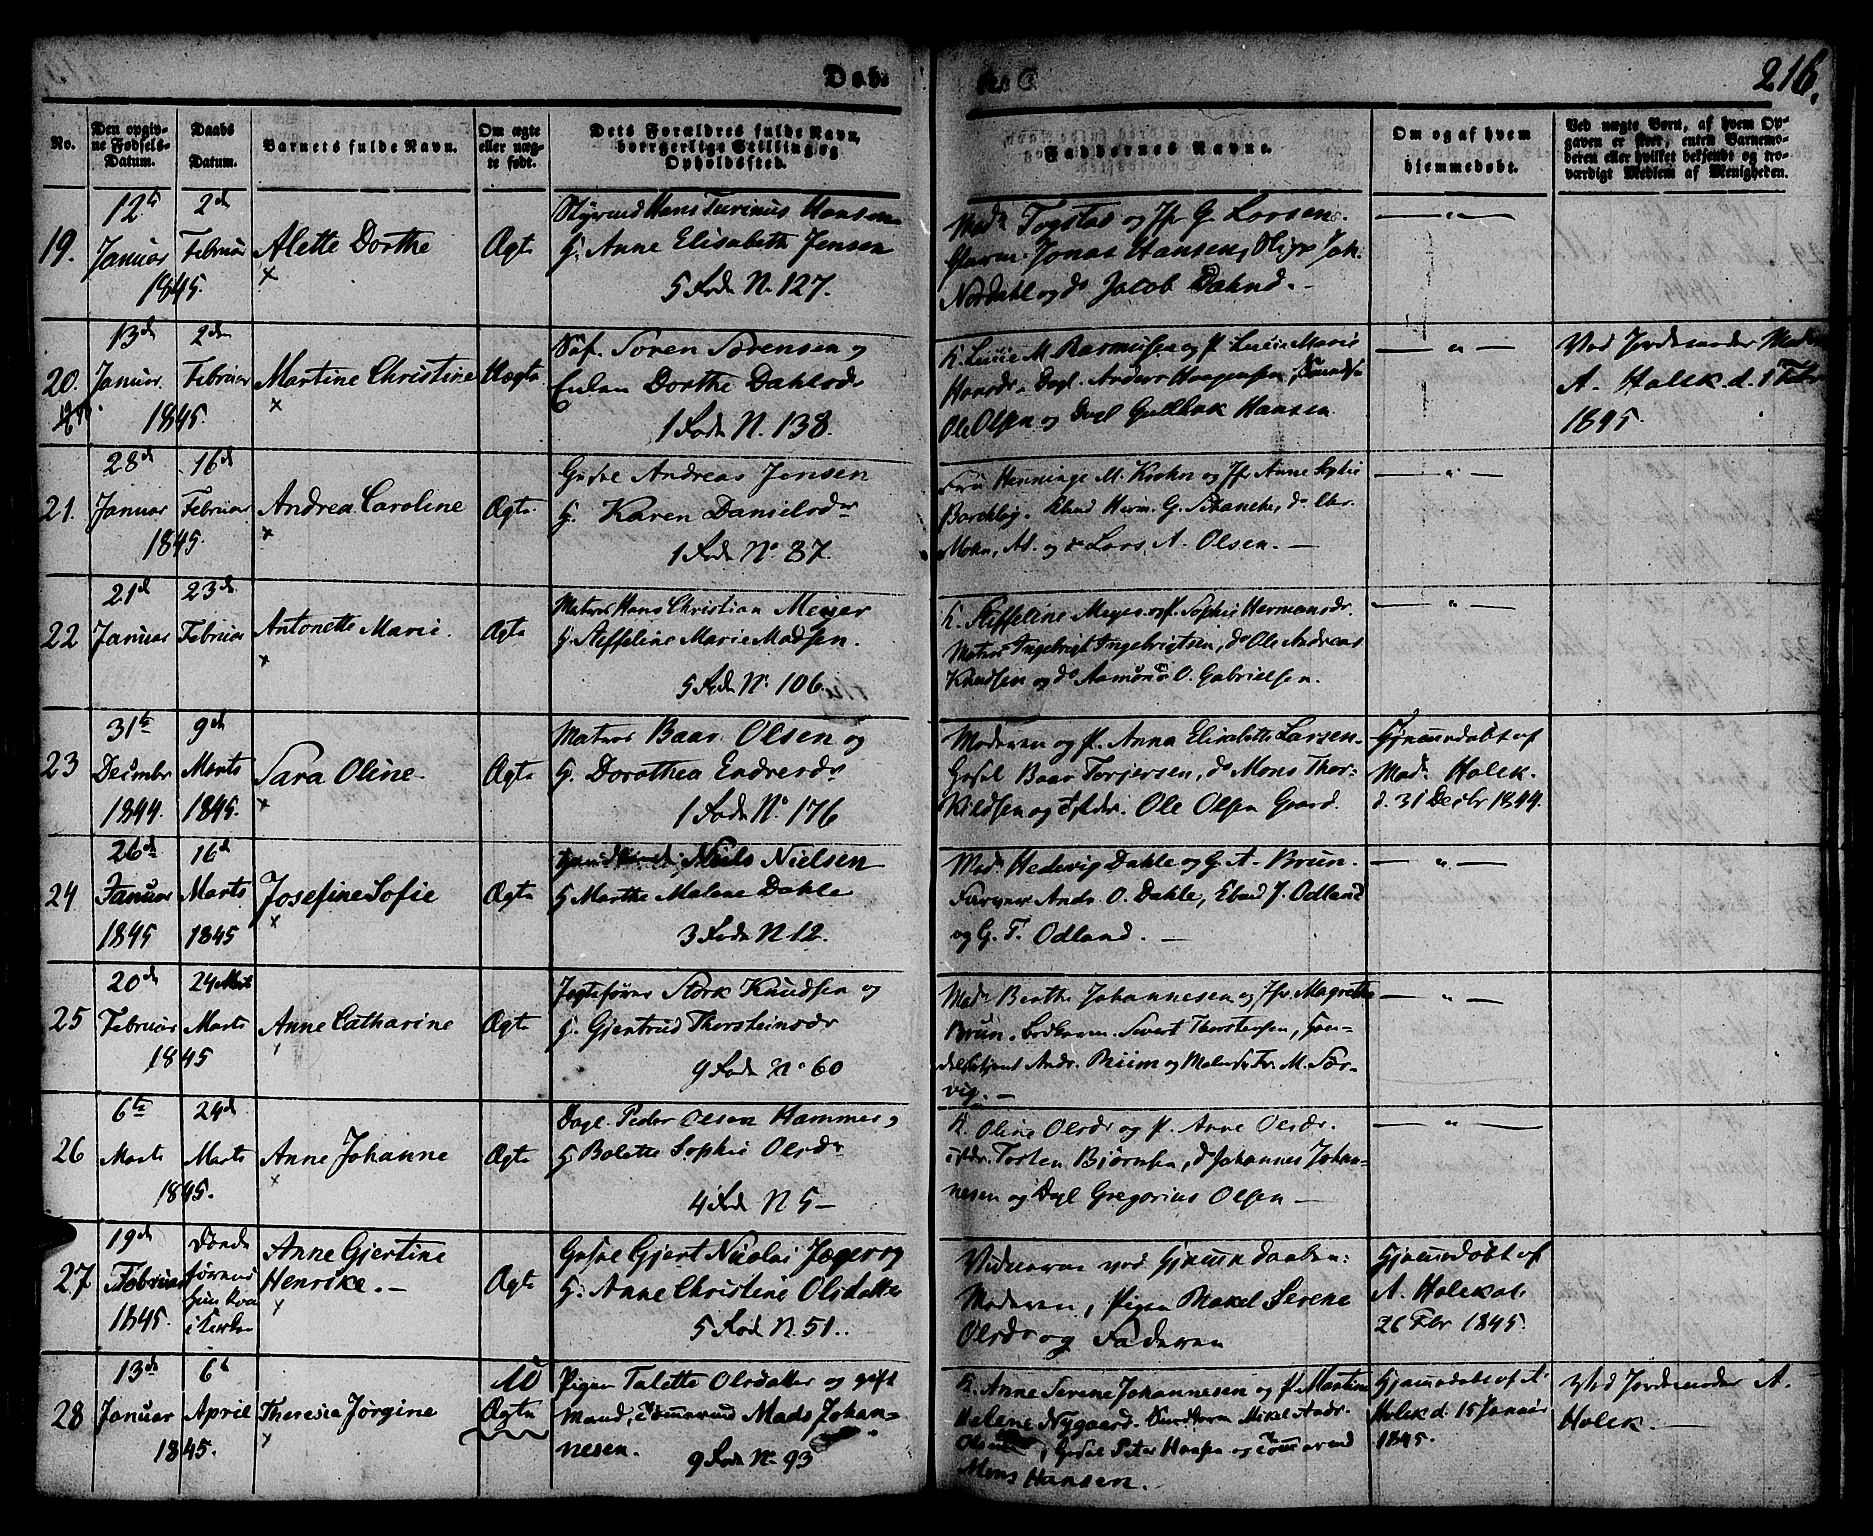 Døb-
216.
No.
Den opgiv-
ne Fødsels-
Datum.
Daabs
Datum.
Barnets fulde Navn.
Om ægte
eller uæg-
te født.
Dets Forældres fulde Navn,
borgerlige Stilling og
Opholdssted.
Faddernes Navne.
Om og af hvem
hjemmedøbt.
Ved uægte Børn, af hvem Op-
gaven er skeet, enten Barnemo-
deren eller hvilket bekjendt og tro-
værdigt Medlem af Menigheden.
19.
12te
Januar
1845.
2den
Februar
Alette Dorthe
Ægte
Styrmd Hans Hansen
H. Anne Elisabeth Jensen
5 Rode No 127.
Mad. Togstad og Jfr G. Larsen.
Jonas Hansen, Joh.
Nordahl og do Jacob
20.
13de
Januar
1845.
2den
Februar
Martine Christine
Uægte
Søf. Søren Sørensen og
Enken Dorthe Dahlsdr
1 Rode N. 138.
K. M. Rasmussen og P. Marie
Hansdr. Dagl. Anders Haagensen,
Ole Olsen og Dagl Gulbrak Hansen
Ved Jordemoder Mad.
A. Holck d. 1 Febr
1845.
21.
28de
Januar
1845.
16de
Februar
Andrea Caroline
Ægte.
Andreas Jensen
H. Karen Danielsdr
1 Rode No 37.
Fru Henninge M. Krohn og Jfr Anne
Herm. G. do Chr.
Mohn, og do Lars A. Olsen.
22
21de
Januar
23de
Februar
Antonette Marie.
Ægte
Matros Hans Christian Meyer
H. Steffeline Marie Madsen.
5 Rode No 106.
K. Steffeline Meyer og P. Sophie Hermansdr.
Matros Ingebrigt Ingebrigtsen, do Ole Andreas
Knudsen og do O. Gabrielsen.
23
31te
Decembr
1844.
9de
Marts
1845.
Sara Oline
Ægte
Matros Baar Olsen og
H. Dorothea Endresdr
1 Rode No 176
Moderen og P. Anna Elisabeth Larsen.
Baar Torjersen, do Mons Thor-
Ole Olsen Gaard.
Hjemmedøbt af
Mad. Holck.
d. 31 Decbr 1844.
24
26de
Januar
1845
16de
Marts
1845
Josefine Sofie
Ægte
Niels Nielsen
H Marthe Malene Dahle
3 Rode N 12.
Mad. Hedevig Dahle og G. A. Brun.
Farver Andr. O. Dahle, J. Odland
og G. T. Odland.
25
20de
Februar
1845
24 Marts
Marts
Anne Catharine
Ægte
Jegtefører Størk Knudsen og
H. Gjertrud Thorsteinsdr
9 Rode No 60
Mad. Berthe Johannesen og Jfr Magrethe
Brun. Sivert Thorstensen,
Andr. og M. Sør-
vig.
26
6te
Marts
1845.
24de
Marts
Anne Johanne
Ægte
Dagl. Peder Olsen Hammer og
H Bolette Sophie Olsdr
4 Rode N 5
K. Oline Olsdr og P. Anne Olsdr.
Torsten Bjørnsen, do Johannes Johan-
nesen og Dagl Gregorius Olsen
27
19de
Februar
1845.
Døde
førend
i Kirken
Anne Gjertine
Henrike.
Ægte
Gjert Nicolai Jæger og
H. Anne Christine Olsdatter
5 Rode N. 51.
Vidnerne ved Hjemmedaaben:
Moderen, Pigen Serene
Olsdr og Faderen
Hjemmedøbt af
A. Holck d.
26 Febr 1845.
28
13de
Januar
1845.
6te
April
Theresia Jørgine
U
Ægte
Pigen Talette Olsdatter og gift
Mand, Tømmermd Mads Johan-
nesen.
9 Rode No 93
K. Anne Serene Johannesen og P. Martine
Helene Nygaard. Mikel Andr.
Olsen, Peter Hansen og Tømmermd
Mons Hansen.
Hjemmedøbt af A.
Holck d. 15 Januar
1845.
Ved Jordemoder A.
Holck.